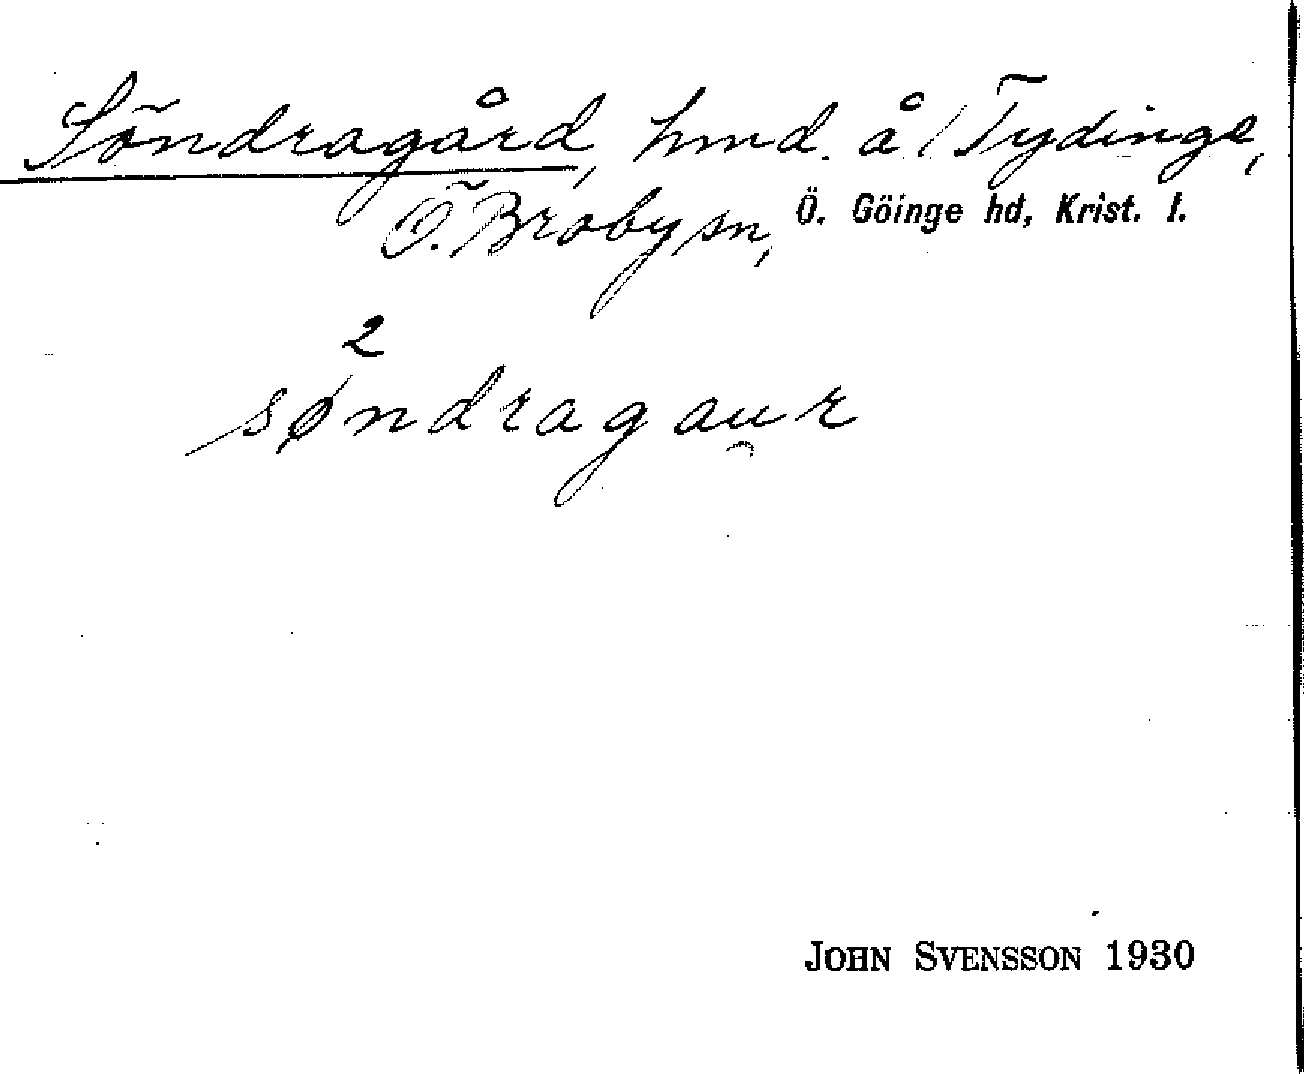 Söndragård, hmd. å 1 Tydinge,
Ö. Broby sn, Ö. Göinge hd, Krist. l.
2
søndragau̯r
JOHN SVENSSON 1930